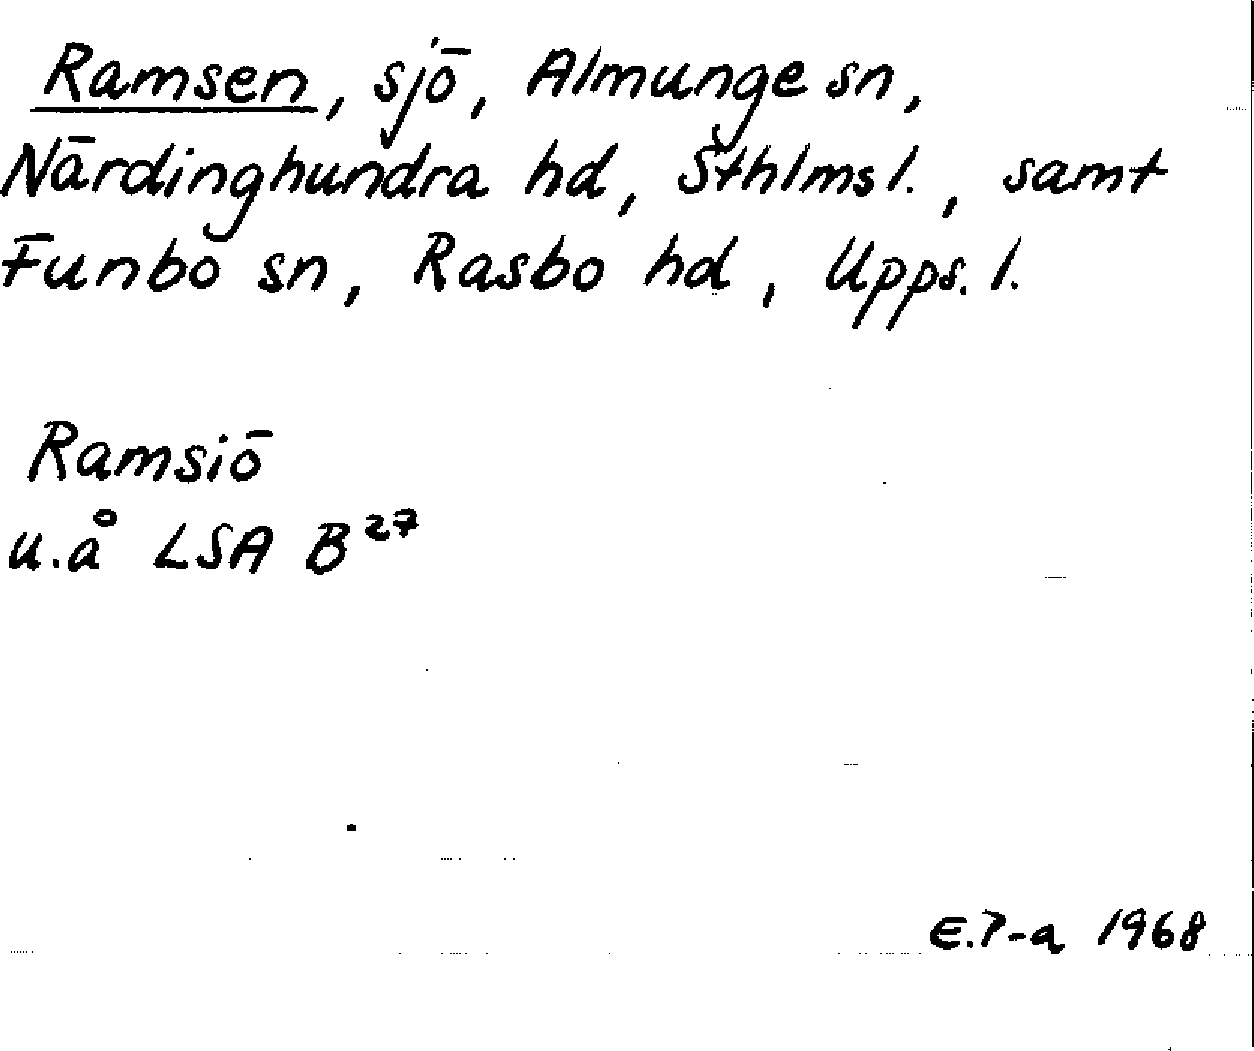 Ramsen, sjö, Almunge sn,
Närdinghundra hd, Sthlms l., samt
Funbo sn, Rasbo hd, Upps. l.
Ramsiö
u.å LSA B²⁷
E.P-a 1968